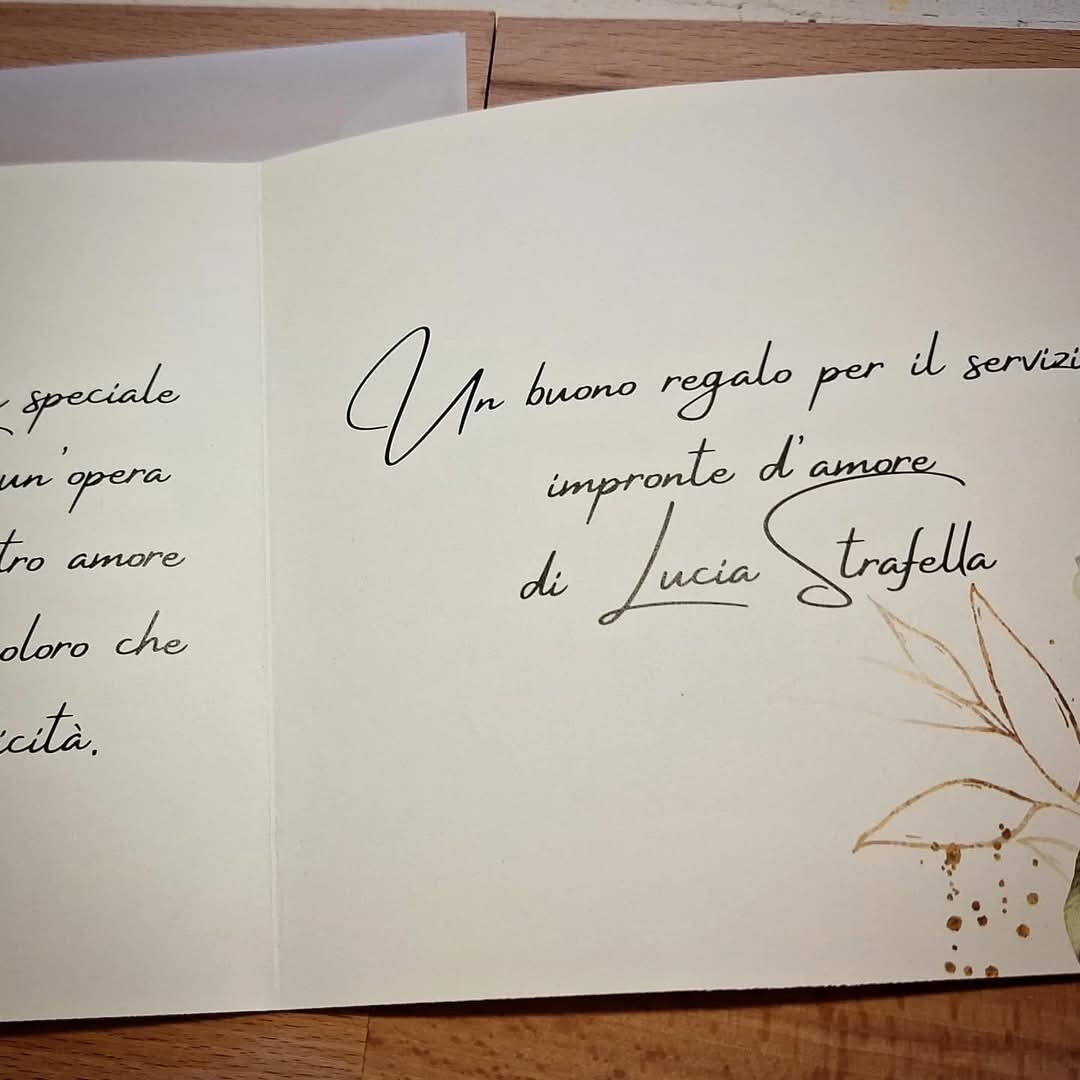 speciale
un'opera
tro amore
oloro che
icità.
Un buono regalo per il servizi
impronte d'amore
di Lucia Strafella